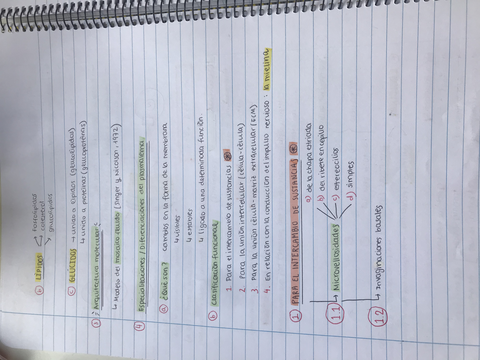 b) LÍPIDOS
fosfolípidos
colesterol
glucolípidos
c) GLÚCIDOS → unido a lípidos (glucolípidos)
↳ unido a proteínas (glucoproteínas)
3) ¿Arquitectura molecular?
↳ Modelo del mosaico fluido (Singer y Nicolson, 1972)
4) Especializaciones / Diferenciaciones del plasmalema
a) ¿Qué son? Cambios en la forma de la membrana
↳ visibles
↳ estables
↳ ligado a una determinada función
b) Clasificación funcional
1. Para el intercambio de sustancias
2. Para la unión intercelular (célula-célula)
3. Para la unión célula-matriz extracelular (ECM)
4. En relación con la conducción del impulso nervioso: la mielina
1) PARA EL INTERCAMBIO DE SUSTANCIAS
1.1 → Microvellosidades
a) de la chapa estriada
b) del ribete en cepillo
c) estereocilios
d) simples
1.2 → Invaginaciones basales